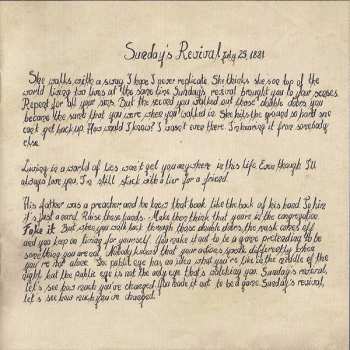 Sunday's Revival July 25, 1881
She walks with a sway I hope I never replicate. She thinks she's on top of the
world living two lives at the same time. Sunday's revival brought you to your senses.
Repent for all your sins. But the second you walked out those double doors you
became the same that you were when you walked in. She hits the ground so hard she
can't get back up. How would I know? I wasn't even there. I'm hearing it from somebody
else.
Living in a world of lies won't get you anywhere in this life. Even though I'll
always love you, I'm still stuck with a liar for a friend.
His father was a preacher and he knew that book like the back of his hand. To him
it's just a card. Raise those hands. Make them think that you're in the congregation.
Fake it. But when you walk back through those double doors, the mask comes off
and you keep on living for yourself. You make it out to be a game pretending to be
something you are not. Nobody knows that your actions speak differently when
you're not alone. The public eye has an idea what you're like in the middle of the
night but the public eye is not the only eye that's watching you. Sunday's revival,
let's see how much you've changed. You made it out to be a game. Sunday's revival,
let's see how much you've changed.